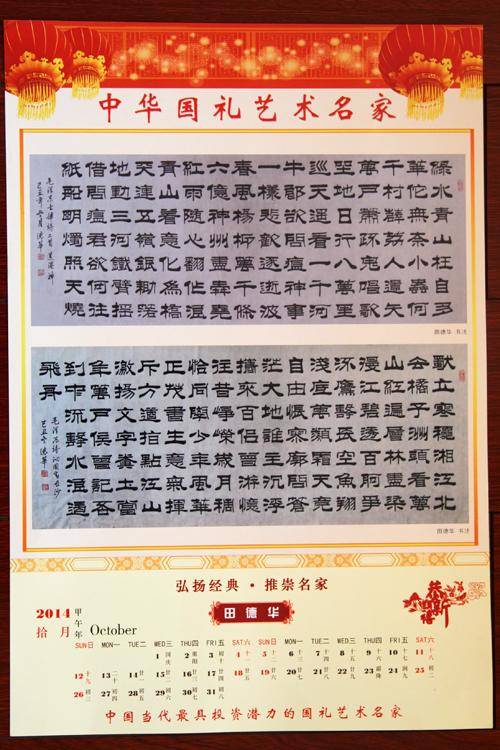 中华国礼艺术名家
綠水青山枉自多
華佗無奈小蟲何
千村薜荔人遺矢
萬戶蕭疏鬼唱歌
坐地日行八萬里
巡天遙看一千河
牛郎欲問瘟神事
一樣悲歡逐逝波
春風楊柳萬千條
六億神州盡舜堯
紅雨隨心翻作浪
青山着意化為橋
天連五嶺銀鋤落
地動三河鐵臂搖
借問瘟君欲何往
紙船明燭照天燒
田德华 书法
獨立寒穐湘江北
去橘子洲頭看萬
山紅遍層林盡染
漫江碧透百舸爭
流鷹擊長空魚翔
淺底萬類霜天競
自由悵寥廓問蒼
茫大地誰主沉浮
攜來百侶曾遊憶
往昔崢嶸歲月稠
恰同學少年風華
正茂書生意氣揮
斥方遒指點江山
激揚文字糞土當
年萬戶侯曾記否
到中流擊水浪遏
飛舟
田德华 书法
弘扬经典·推崇名家
田德华
恭贺新禧
2014 甲午年
拾月 October
SUN日 MON一 TUE二 WED三 THU四 FRI五 SAT六 SUN日 MON一 TUE二 WED三 THU四 FRI五 SAT六
1国庆 2重阳 3初十 4十一 5十二 6十三 7十四 8寒露 9十六 10十七 11十八
12十九 13二十 14廿一 15廿二 16廿三 17廿四 18廿五 19廿六 20廿七 21廿八 22廿九 23霜降 24初一 25初二
26初三 27初四 28初五 29初六 30初七 31初八
中国当代最具投资潜力的国礼艺术名家